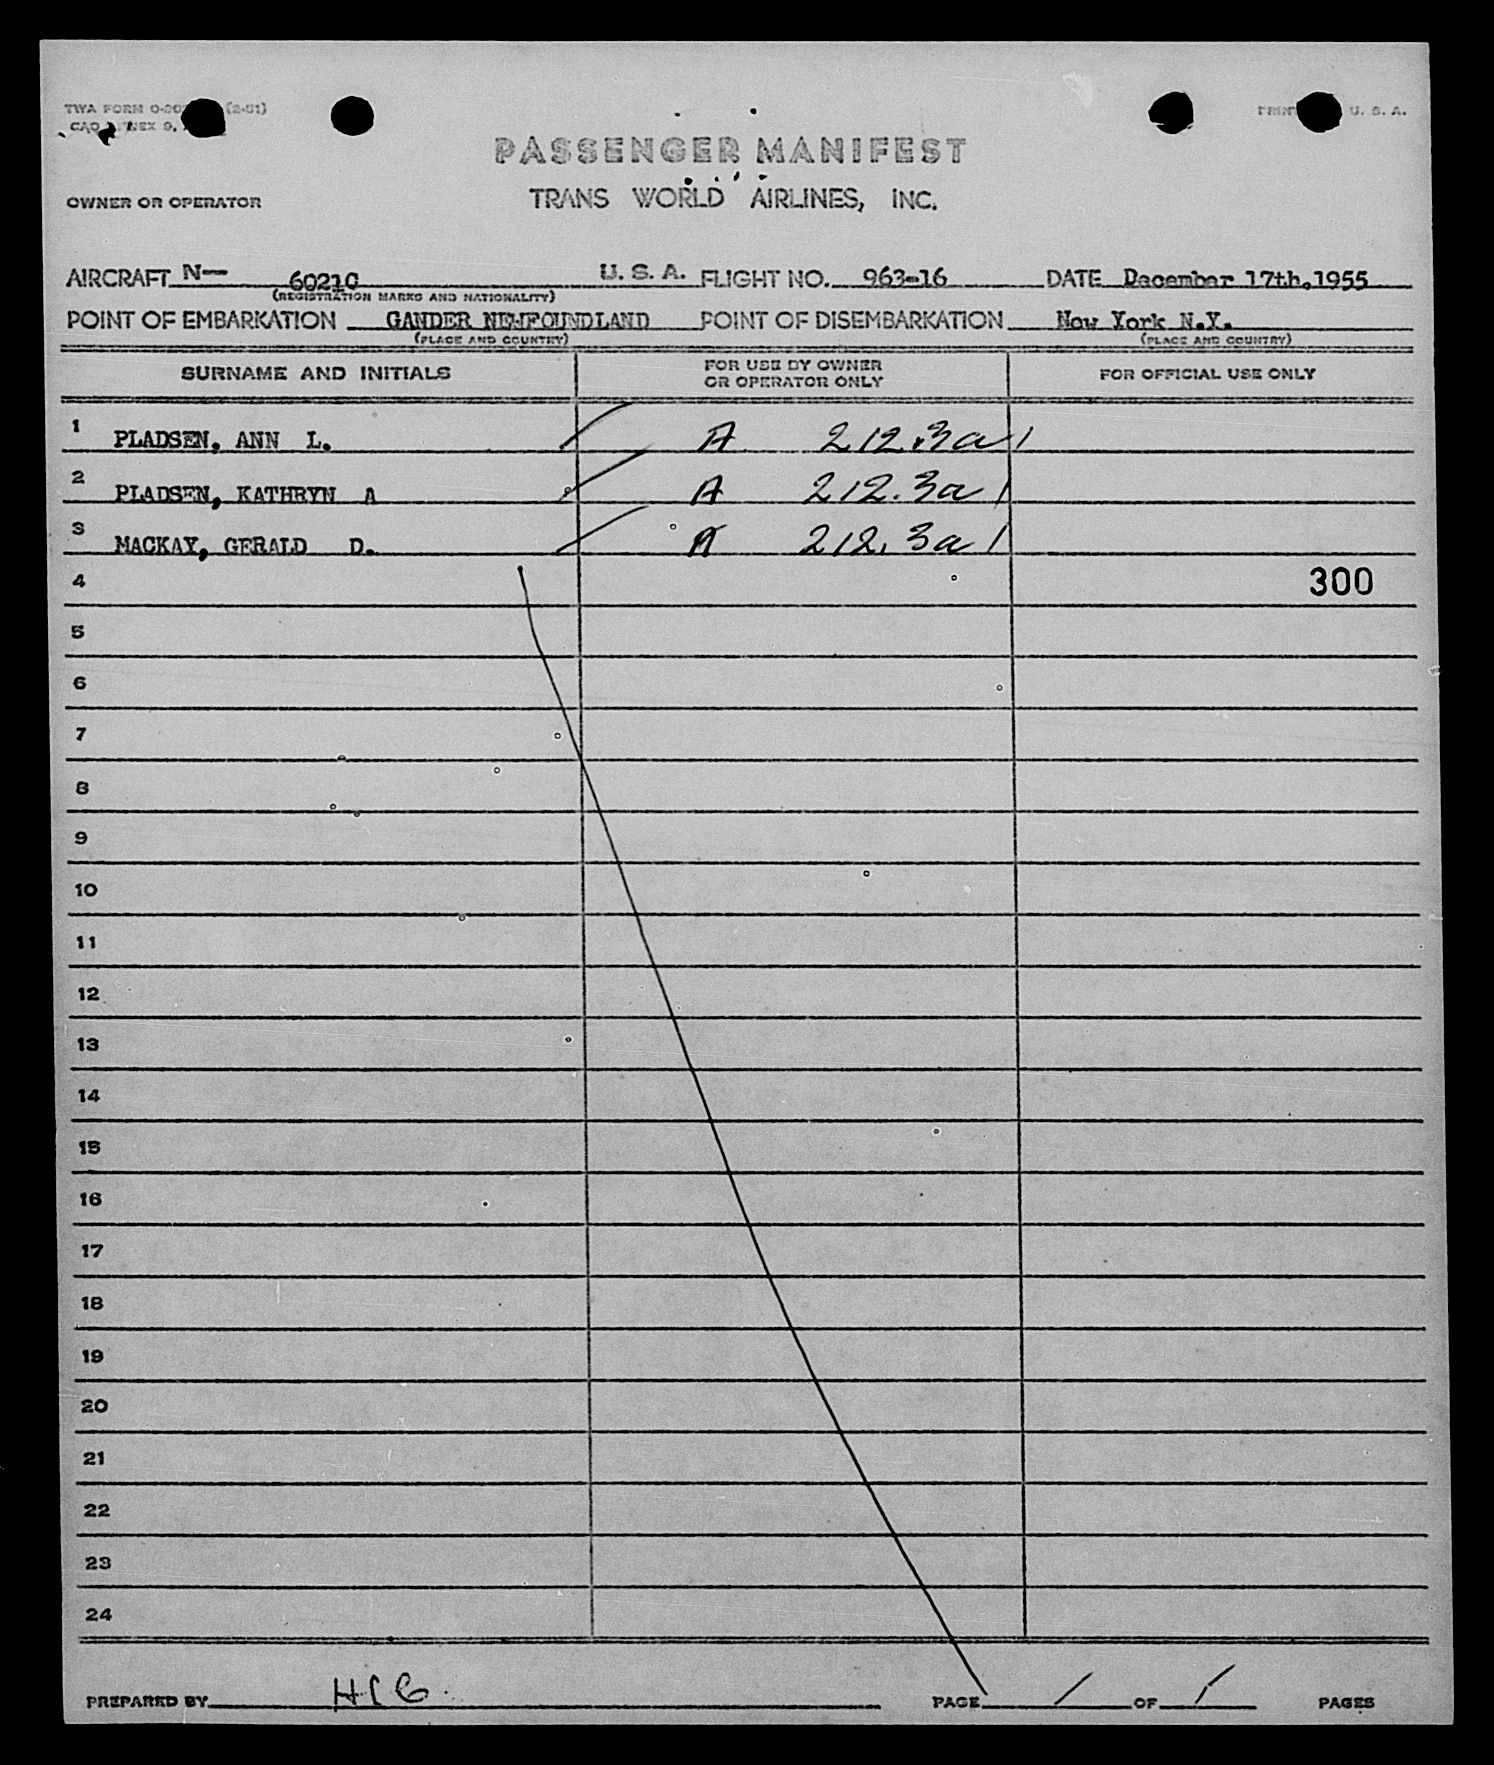 TWA FORM (2-51) PRINT U. S. A.
PASSENGER MANIFEST
OWNER OR OPERATOR TRANS WORLD AIRLINES, INC.
AIRCRAFT N— 6021C U. S. A. FLIGHT NO. 963-16 DATE December 17th.1955
(REGISTRATION MARKS AND NATIONALITY)
POINT OF EMBARKATION GANDER NEWFOUNDLAND POINT OF DISEMBARKATION New York N.Y.
(PLACE AND COUNTRY) (PLACE AND COUNTRY)
SURNAME AND INITIALS FOR USE BY OWNER OR OPERATOR ONLY FOR OFFICIAL USE ONLY
1 PLADSEN, ANN L. A 212.3a1
2 PLADSEN, KATHRYN A A 212.3a1
3 MACKAY, GERALD D. A 212.3a1
4 300
5
6
7
8
9
10
11
12
13
14
15
16
17
18
19
20
21
22
23
24
PREPARED BY PAGE 1 OF 1 PAGES